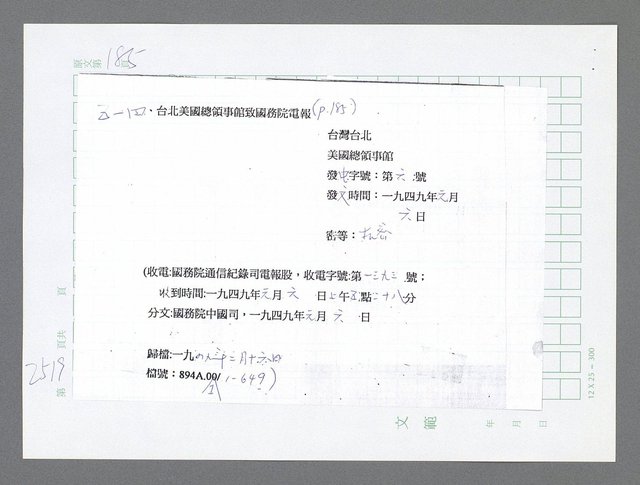 原文第185頁
五一四、台北美國總領事館致國務院電報(p.185)
台灣台北
美國總領事館
發電字號：第六號
發文時間：一九四九年元月
六日
密等：機密
(收電:國務院通信紀錄司電報股，收電字號:第一三九三號；
收到時間:一九四九年元月六日上午五點二十八分
分文:國務院中國司，一九四九年元月六日
歸檔:一九四九年二月十六日
檔號：894A.00/1-649)
2519
第 頁共 頁
文範
年 月 日
12 X 25 － 300